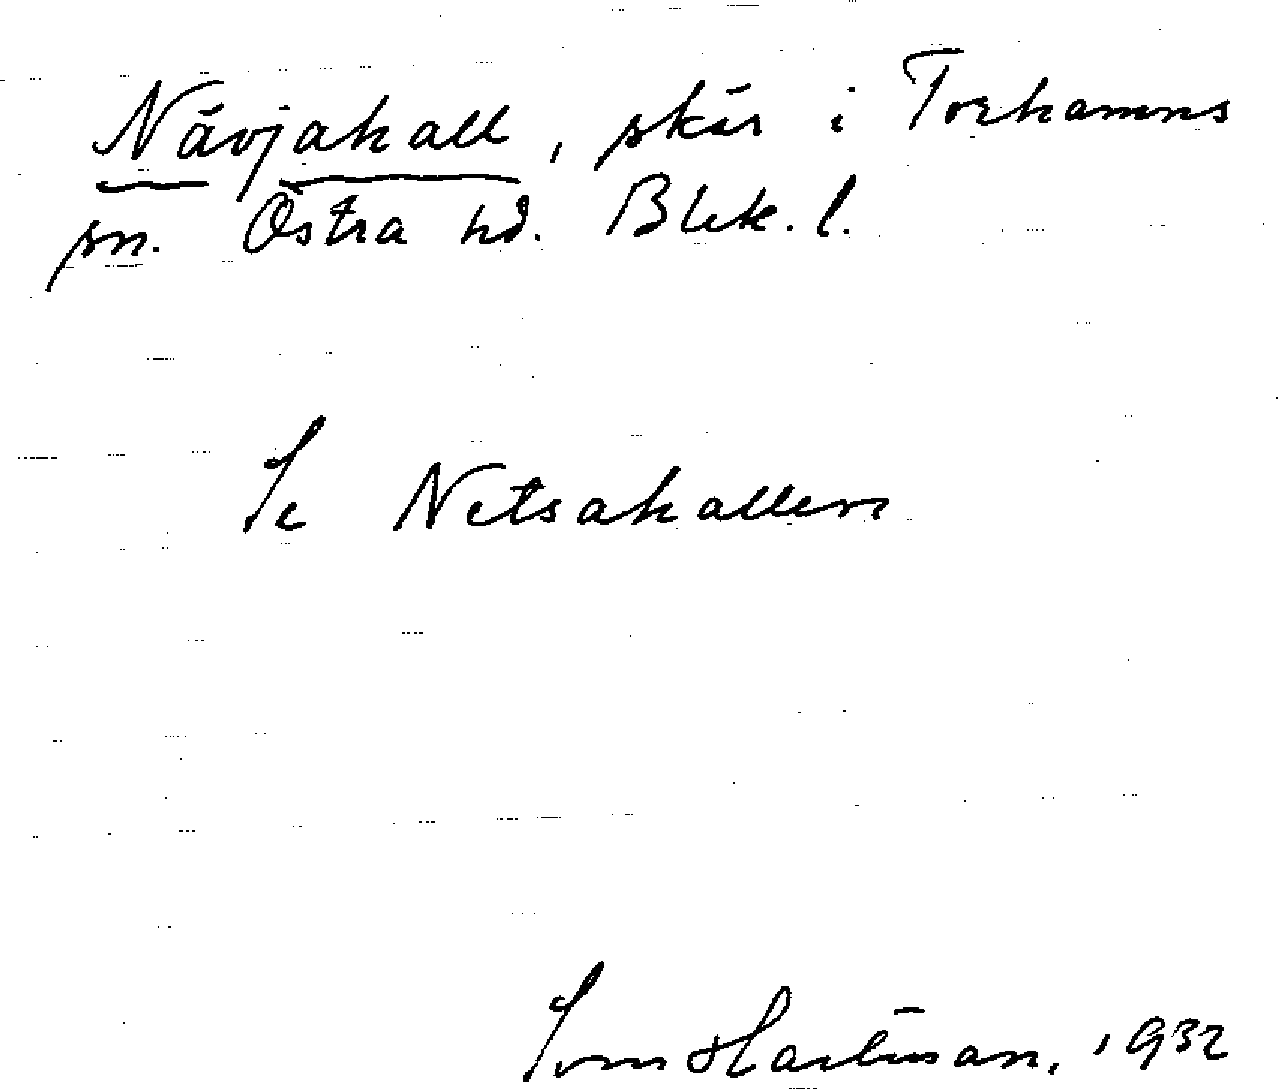 Nävjakall, skär i Torhamns
sn. Östra hd. Blek. l.
Se Netsakallen
Sven Hartman, 1932